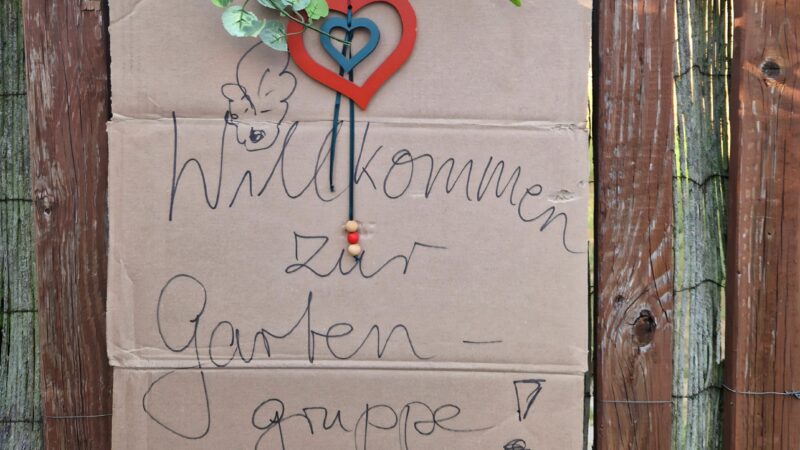 Willkommen
zur
Garten-
gruppe!